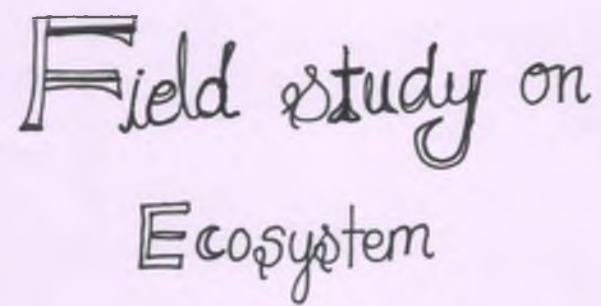 Field study on
Ecosystem